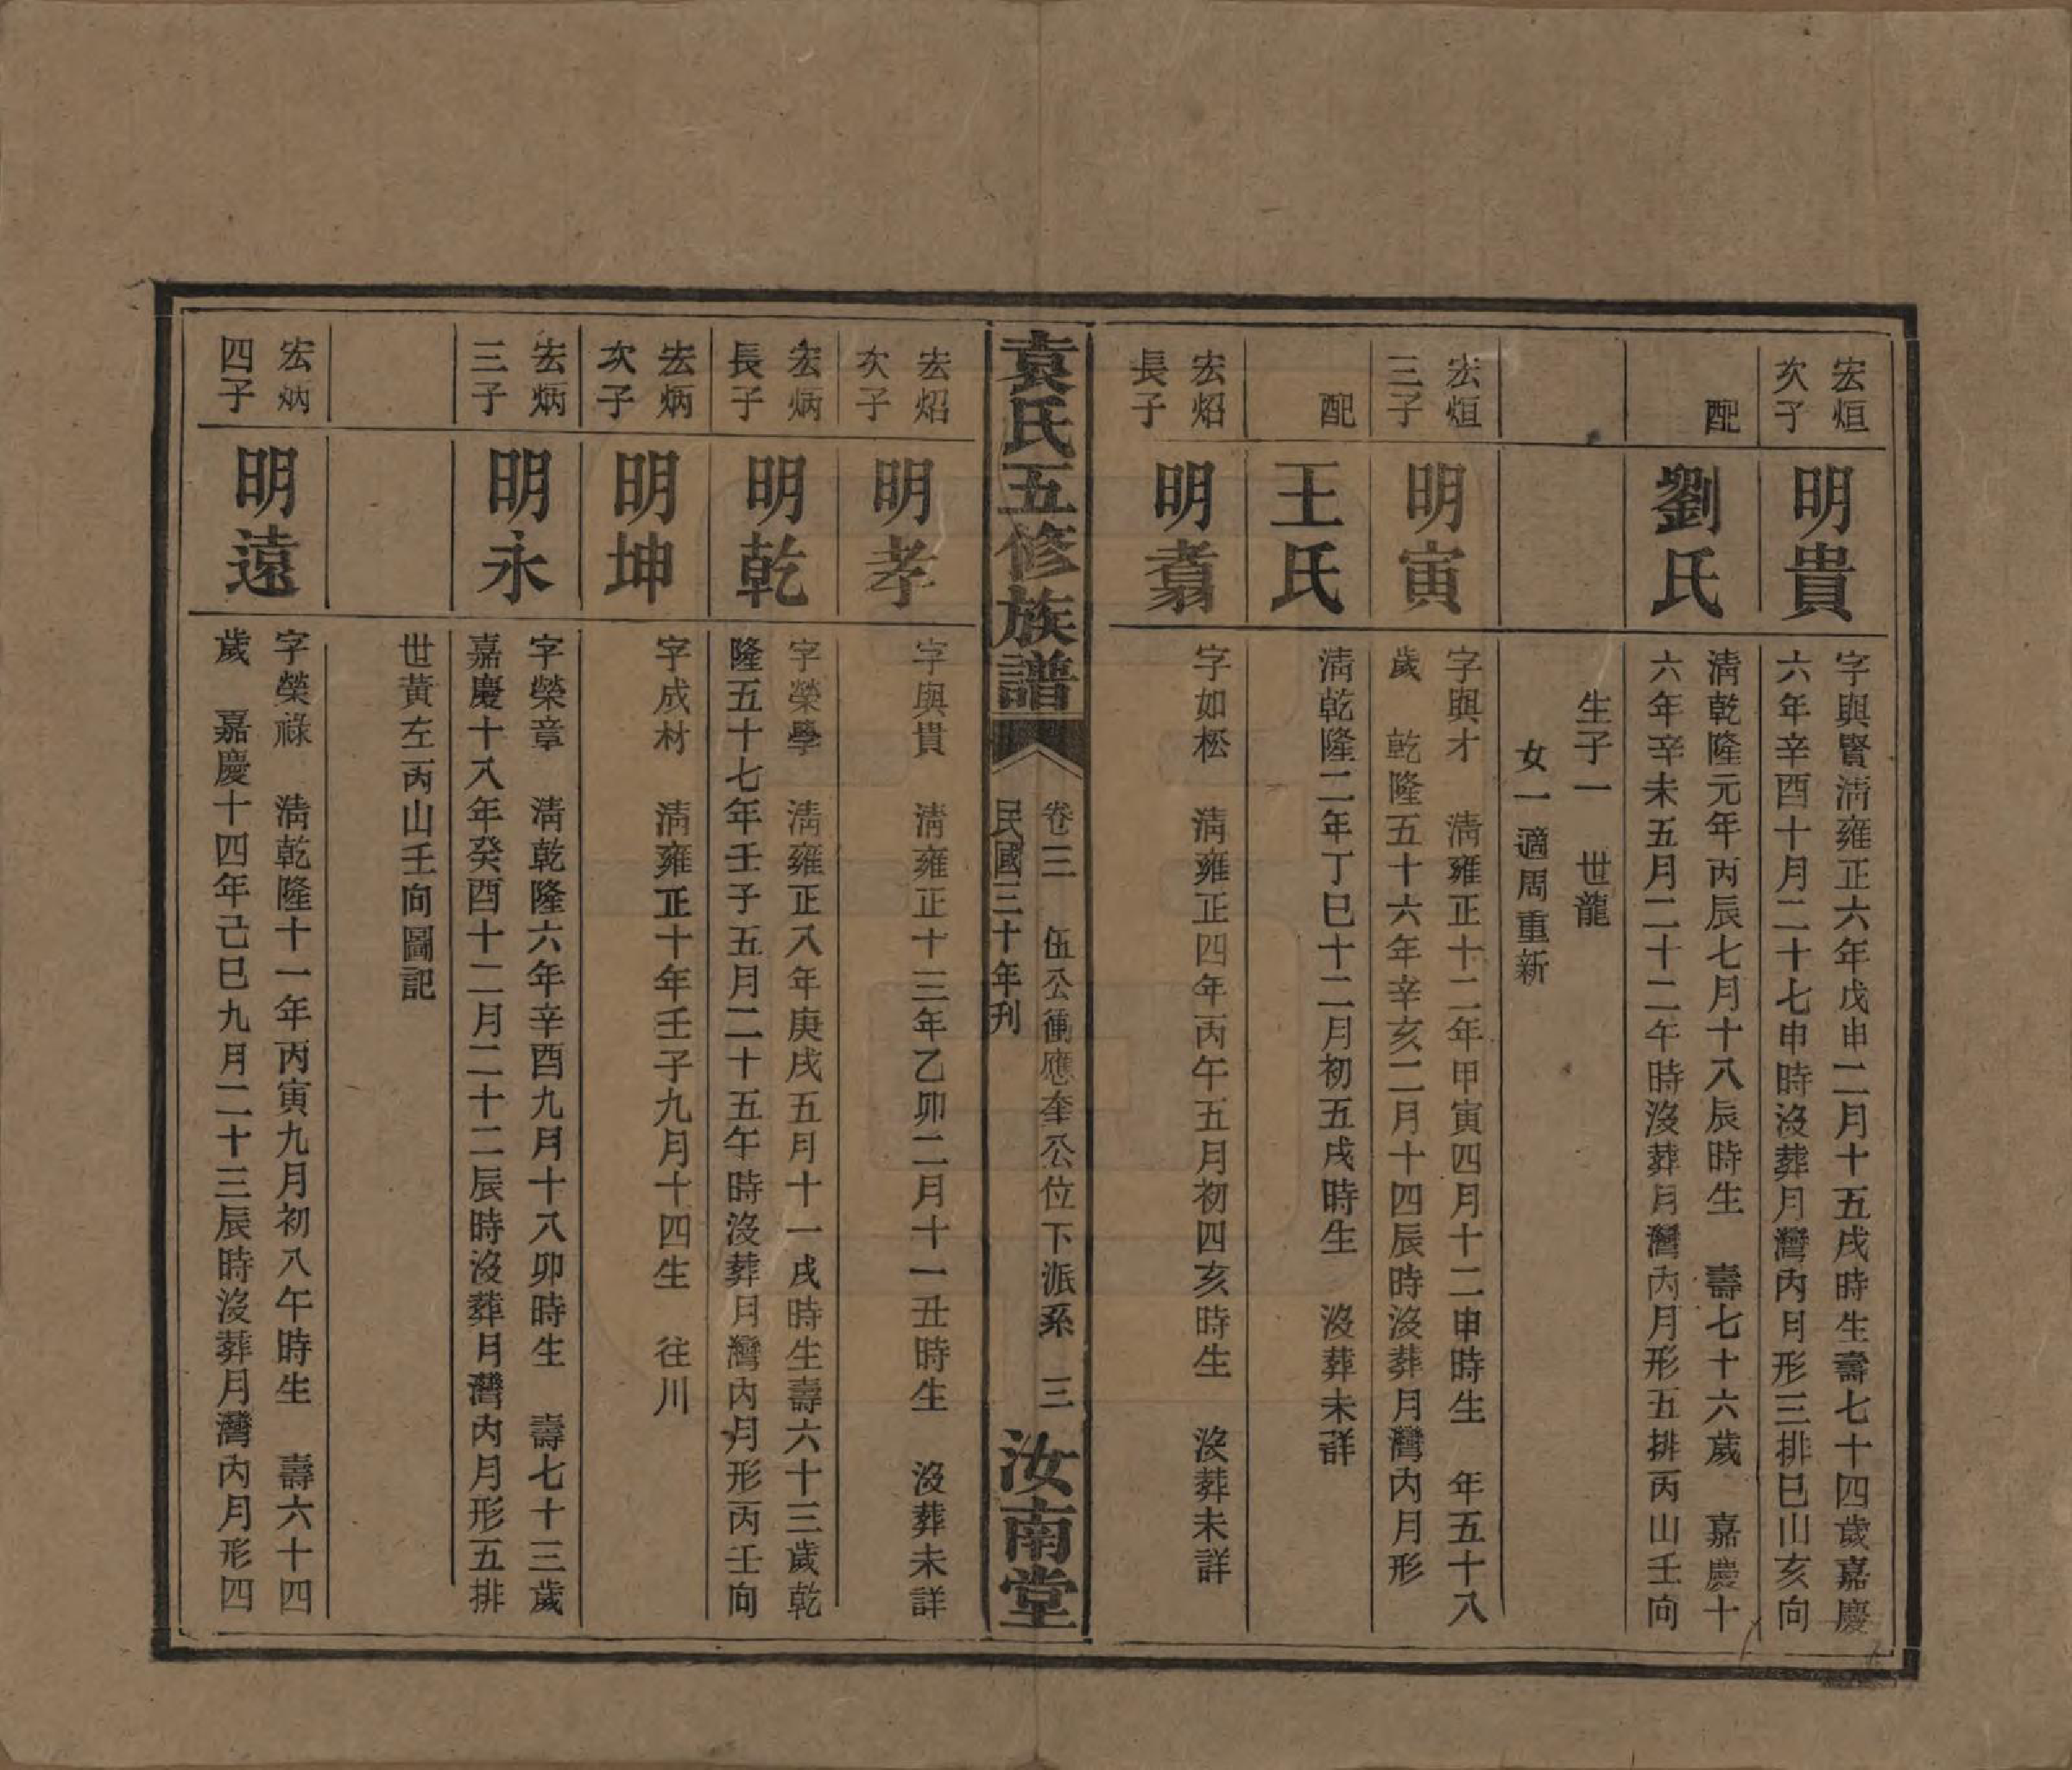 宏烜
次子
明貴
字與賢清雍正六年戊申二月十五戌時生壽七十四歲嘉慶
六年辛酉十月二十七申時沒葬月灣內月形三排巳山亥向
配
劉氏
清乾隆元年丙辰七月十八辰時生　壽七十六歲　嘉慶十
六年辛未五月二十二午時沒葬月灣內月形五排丙山壬向
生子一　世龍
女一適周重新
宏烜
三子
明寅
字與才　清雍正十二年甲寅四月十二申時生　年五十八
歲　乾隆五十六年辛亥二月十四辰時沒葬月灣內月形
配
王氏
清乾隆二年丁巳十二月初五戌時生　沒葬未詳
宏炤
長子
明翥
字如松　清雍正四年丙午五月初四亥時生　沒葬未詳
袁氏五修族譜
卷三　伍公衝應奎公位下派系　三
民國三十年刊
汝南堂
宏炤
次子
明孝
字與貴　清雍正十三年乙卯二月十一丑時生　沒葬未詳
宏炳
長子
明乾
字榮學　清雍正八年庚戌五月十一戌時生壽六十三歲乾
隆五十七年壬子五月二十五午時沒葬月灣內月形丙壬向
宏炳
次子
明坤
字成材　清雍正十年壬子九月十四生　往川
宏炳
三子
明永
字榮章　清乾隆六年辛酉九月十八卯時生　壽七十三歲
嘉慶十八年癸酉十二月二十二辰時沒葬月灣內月形五排
世黃左丙山壬向圖記
宏炳
四子
明遠
字榮祿　清乾隆十一年丙寅九月初八午時生　壽六十四
歲　嘉慶十四年己巳九月二十三辰時沒葬月灣內月形四